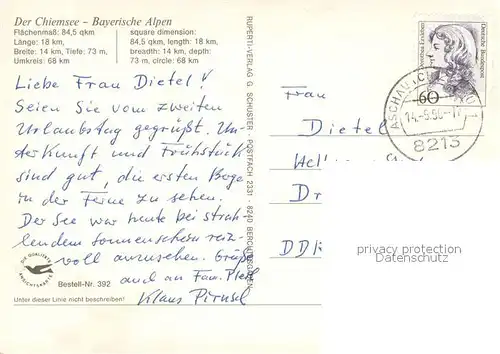 Der Chiemsee – Bayerische Alpen
Flächenmaß: 84,5 qkm
Länge: 18 km,
Breite: 14 km, Tiefe: 73 m,
Umkreis: 68 km
square dimension:
84,5 qkm, length: 18 km,
breadth: 14 km, depth:
73 m, circle: 68 km
Liebe Frau Dietel!
Seien Sie vom zweiten
Urlaubstag gegrüßt. Un-
terkunft und Frühstück
sind gut, die ersten Berge
in der Ferne zu sehen.
Der See war heute bei strah-
lendem Sonnenschein reiz-
voll anzusehen. Grüße
auch an Fam.
Klaus
DIE QUALITÄTS
ANSICHTSKARTE
Bestell-Nr. 392
Unter dieser Linie nicht beschreiben!
RUPERTI-VERLAG G. SCHUSTER POSTFACH 2331 · 8240 BERCHTESGADEN
Deutsche Bundespost
60
ASCHAU I. CH
8213
Frau
Dietel
Dr
DDR
privacy protection
Datenschutz